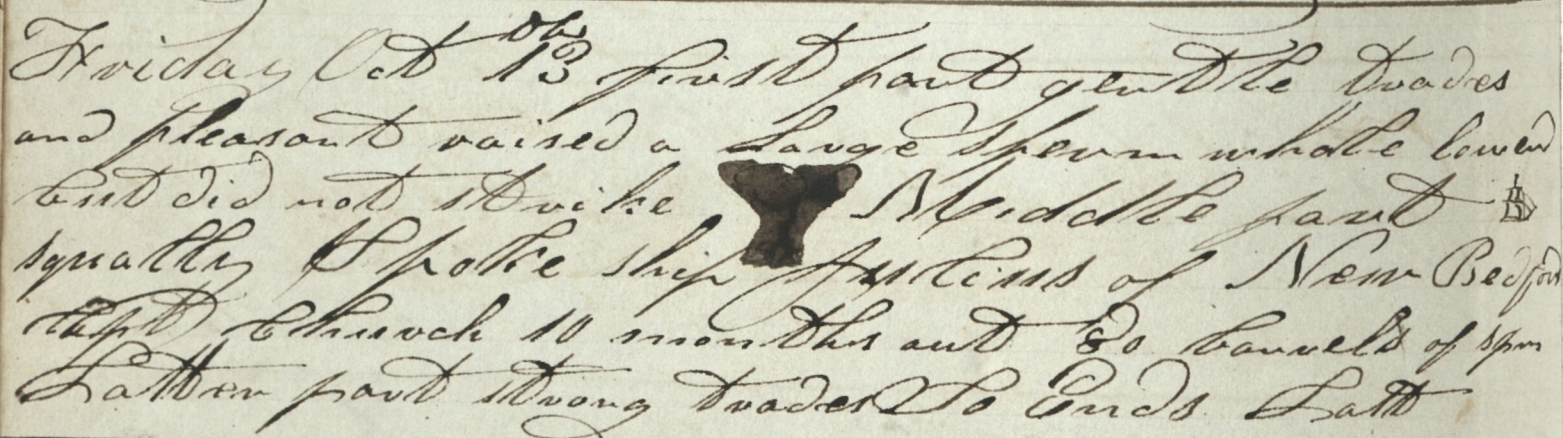 Friday Oct 13 first part gentle trades
and pleasant raised a Large Sperm whale lowerd
but did not strike Middle part
squally Spoke ship Julius of New Bedford
Capt Church 10 months out 80 barrels of spm
Latter part strong trades So Ends Latt